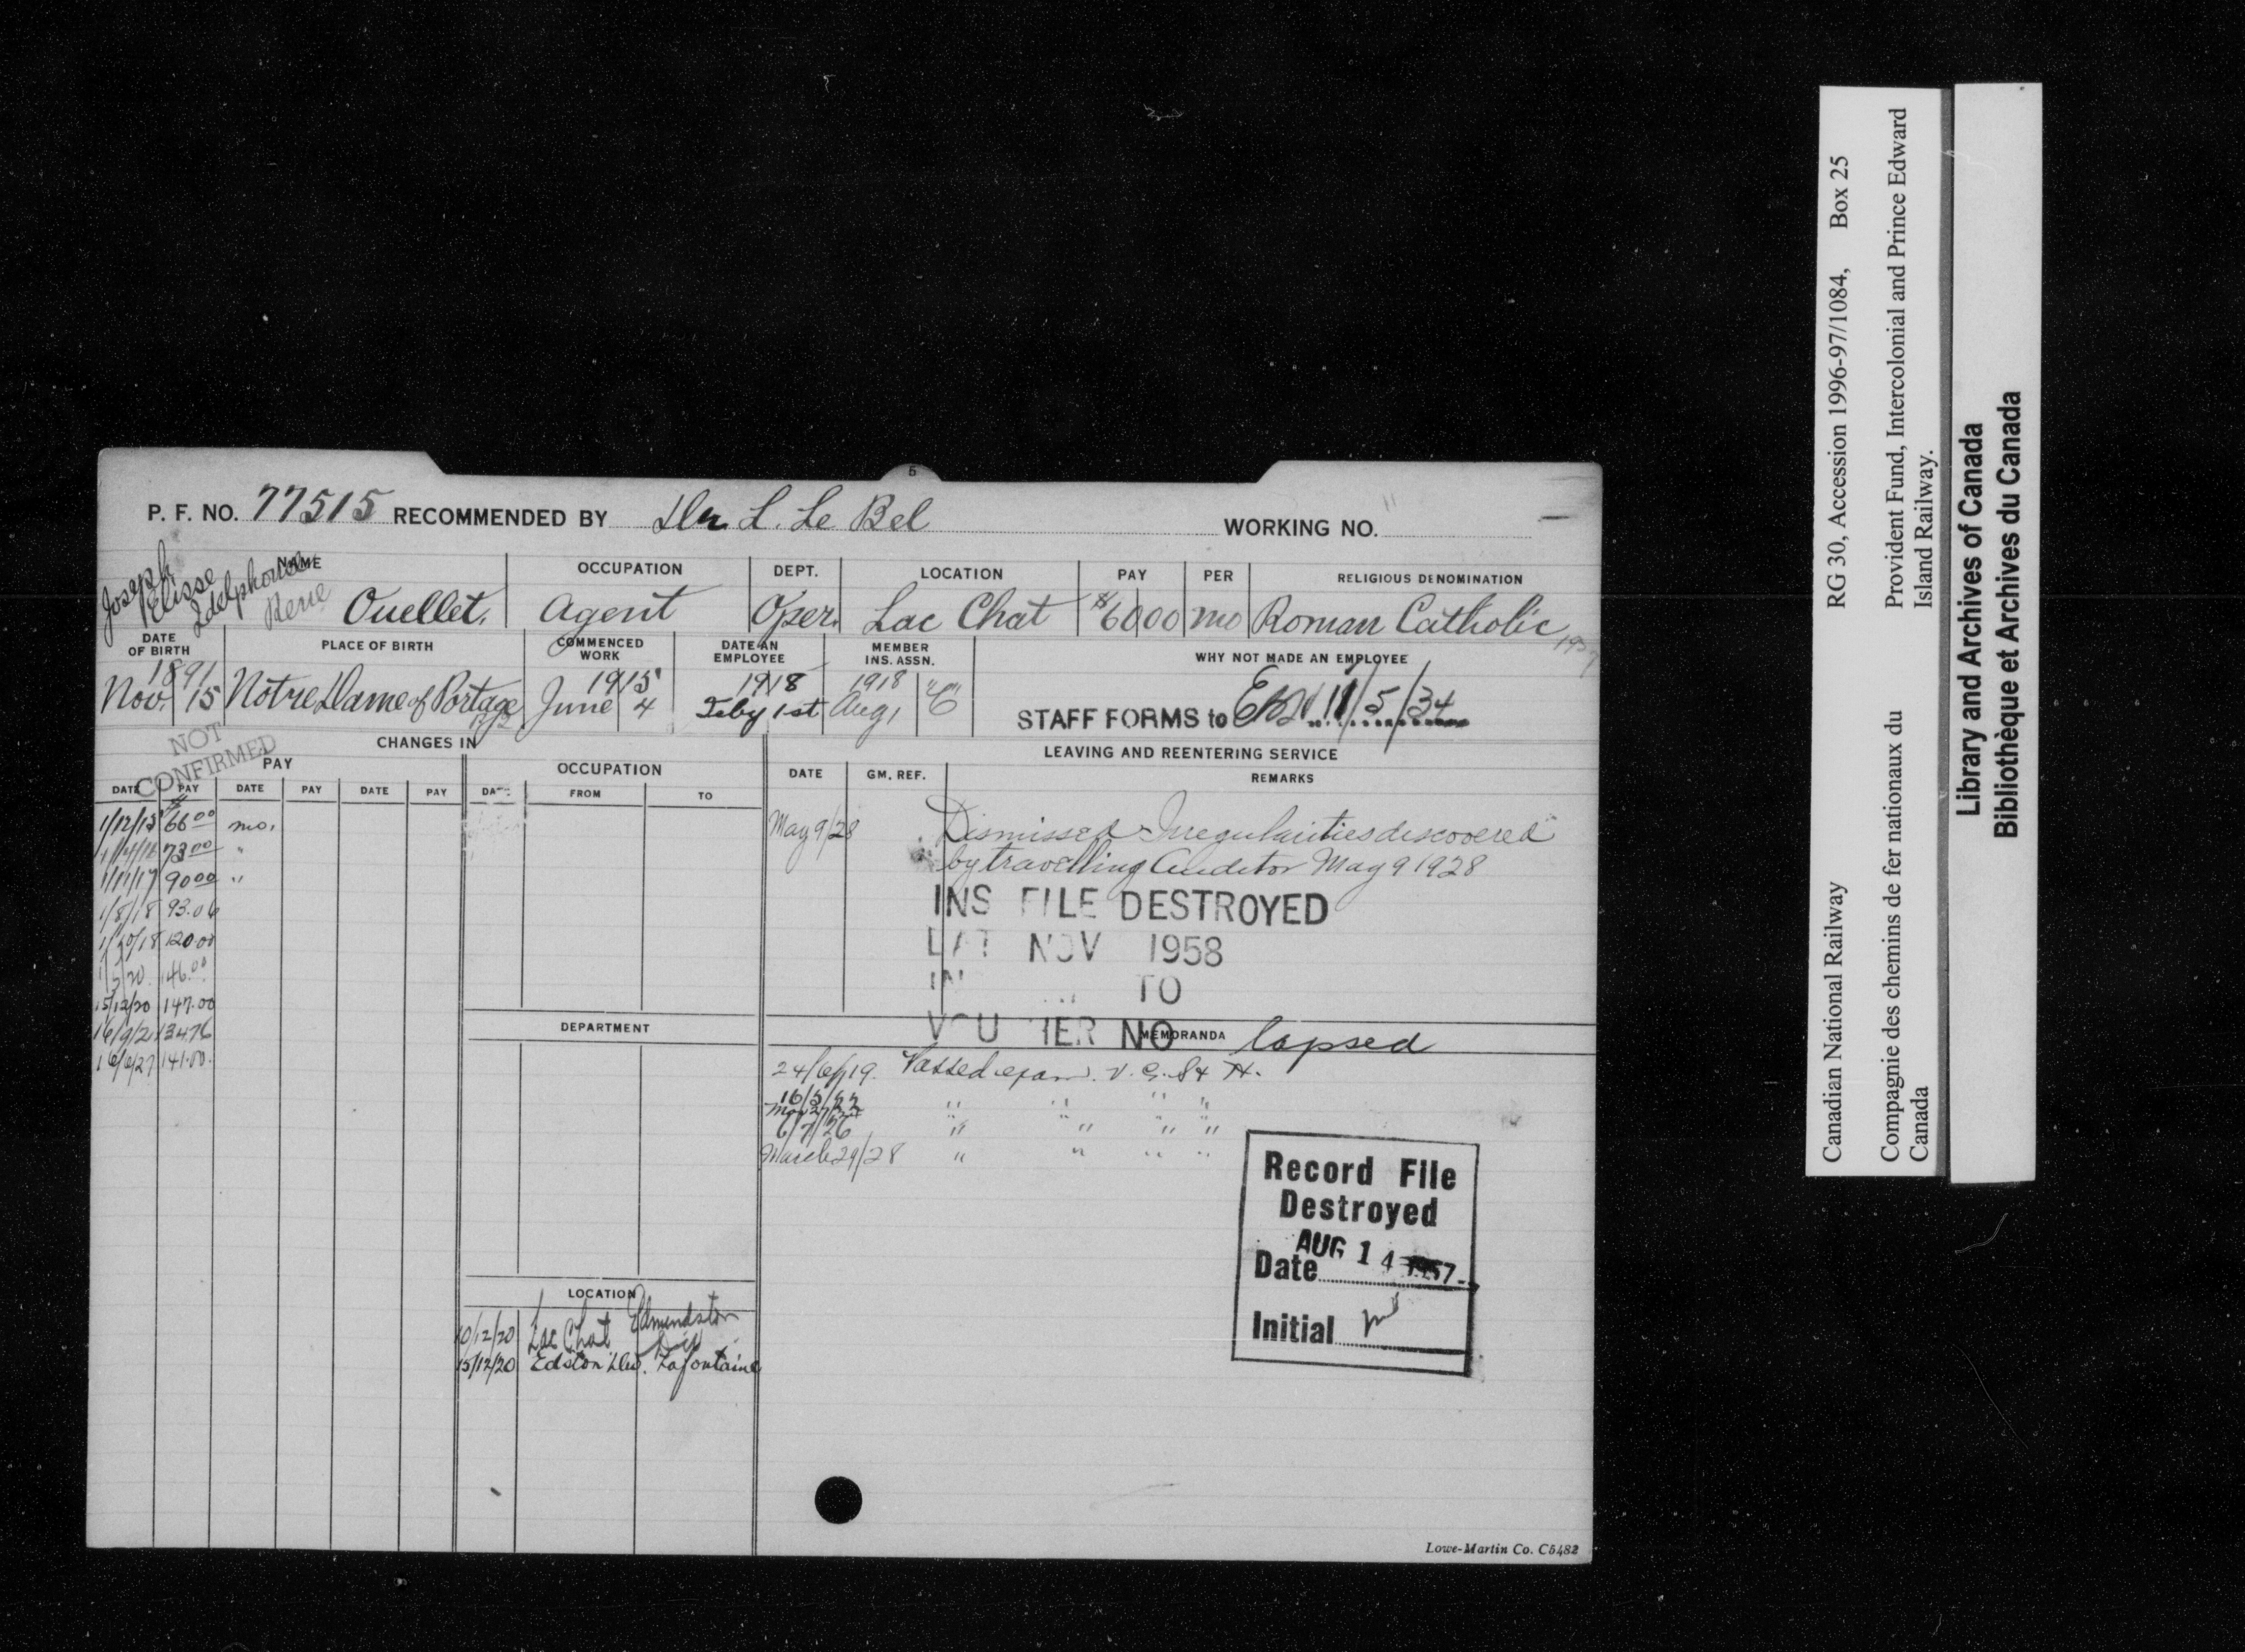 P. F. NO. 77515 RECOMMENDED BY L. Le Bel WORKING NO.
NAME OCCUPATION DEPT. LOCATION PAY PER RELIGIOUS DENOMINATION
Joseph
Elisse
Idelphonse
Rene Ouellet. Agent Oper. Lac Chat $60 00 mo Roman Catholic
DATE OF BIRTH PLACE OF BIRTH COMMENCED WORK DATE AN EMPLOYEE MEMBER INS. ASSN. WHY NOT MADE AN EMPLOYEE
1891 1915 1918 1918 "C"
Nov. 15 Notre Dame of Portage June 4 Feby 1st Aug 1 STAFF FORMS to 11/5/34
NOT
CONFIRMED
CHANGES IN LEAVING AND REENTERING SERVICE
PAY OCCUPATION DATE GM. REF. REMARKS
DATE PAY DATE PAY DATE PAY DATE FROM TO
1/12/15 66 00 mo.
73 00 "
1/11/17 90 00 "
1/8/18 93.06
1/10/18 120.00
1/5/20 146.00
15/12/20 147.00
16/9/21 134.76
141.00
May 9/28 Dismissed Irregularities discovered
by travelling Auditor May 9 1928
INS FILE DESTROYED
NOV 1958
TO
NO lapsed
DEPARTMENT MEMORANDA
24/6/19. Passed exam. V. C. S & H.
16/5/22 " " " "
" " " "
6/7/26 " " " "
March 29/28 " " " "
Record File
Destroyed
Date AUG 14 1957
Initial
LOCATION
10/12/20 Lac Chat Edmundston Div
15/12/20 Edston Div. Lafontaine
Lowe-Martin Co. C5482
Canadian National Railway RG 30, Accession 1996-97/1084, Box 25
Compagnie des chemins de fer nationaux du Canada
Provident Fund, Intercolonial and Prince Edward Island Railway.
Library and Archives of Canada
Bibliothèque et Archives du Canada